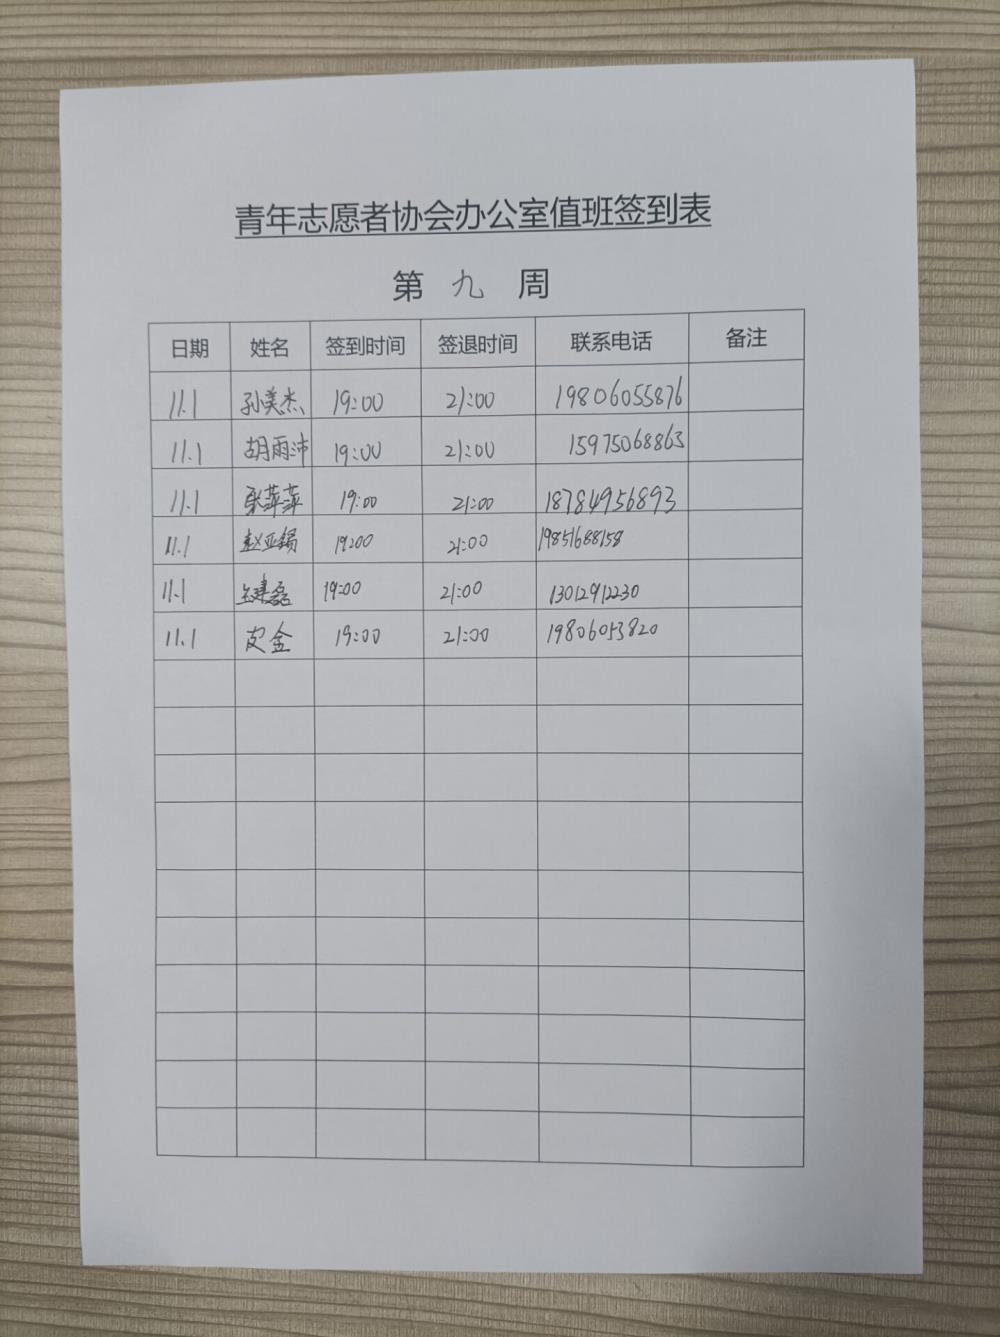 青年志愿者协会办公室值班签到表
第 九 周
日期 姓名 签到时间 签退时间 联系电话 备注
11.1 孙美杰 19:00 21:00 19806055876
11.1 胡雨沛 19:00 21:00 15975068863
11.1 张萍萍 19:00 21:00 18784956893
11.1 赵亚锡 19:00 21:00 19851688158
11.1 19:00 21:00 13012912230
11.1 皮金 19:00 21:00 19806053820